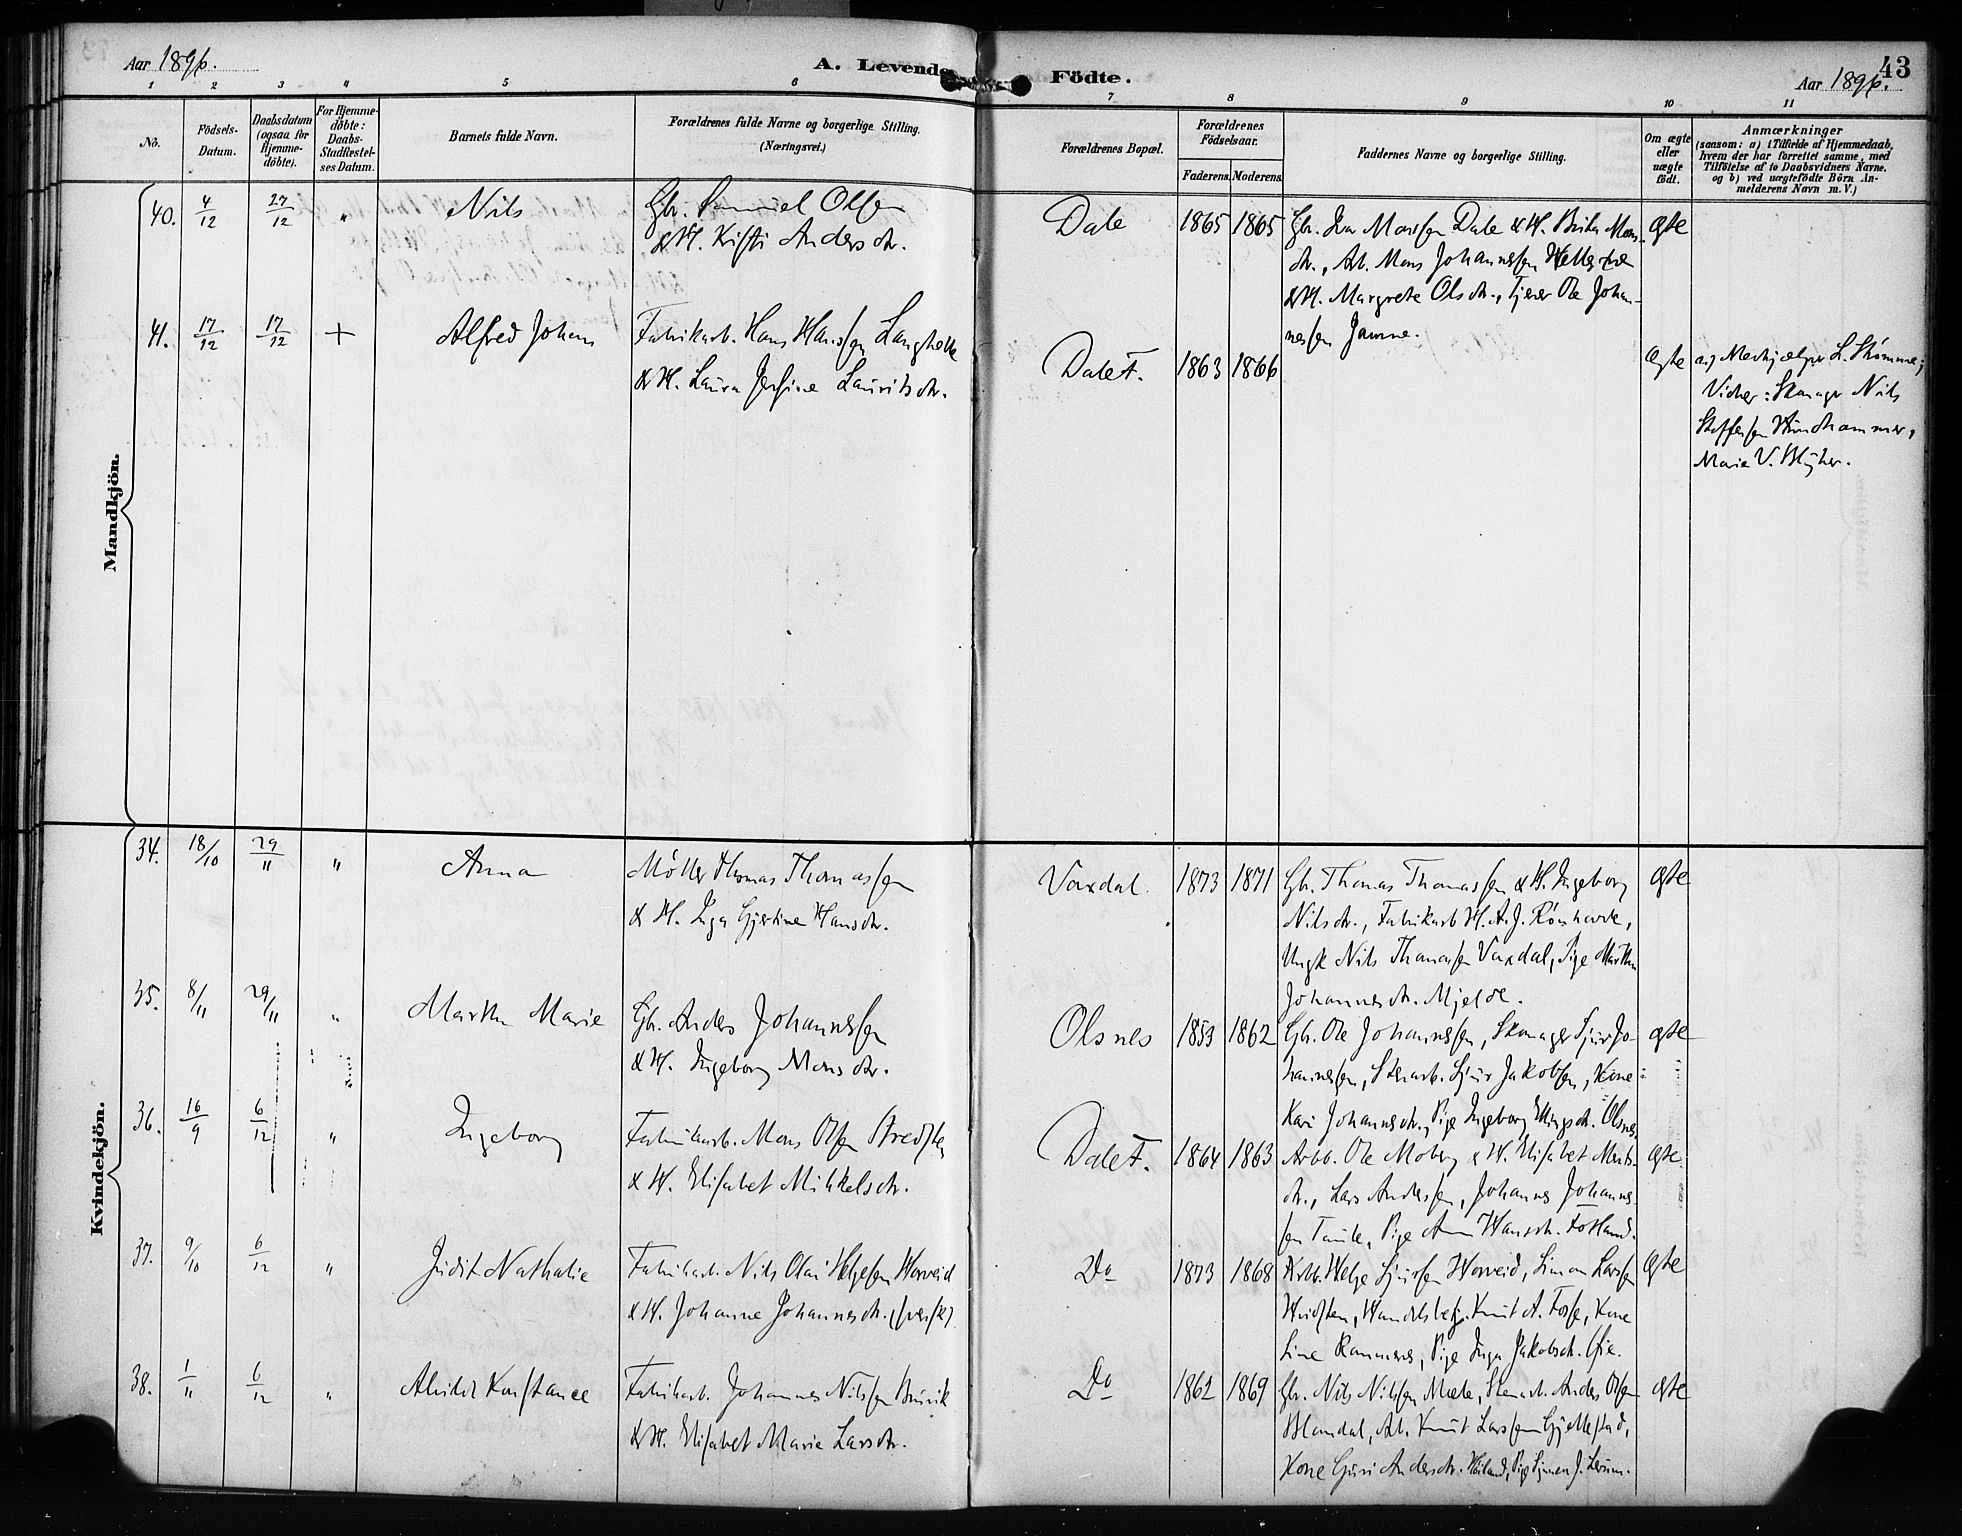 Aar 1896.
A. Levende Födte.
Aar 1896.
43
1 2 3 " 5 6 7 8 9 10 11
No.
Födsels-
Datum.
Daabsdatum
(ogsaa for
Hjemme-
döbte).
For Hjemme-
döbte:
Daabs-
Stadfæstel-
ses Datum.
Barnets fulde Navn.
Forældrenes fulde Navne og borgerlige Stilling.
(Næringsvei.)
Forældrenes Bopæl.
Forældrenes
Födselsaar.
Faderens. Moderens.
Faddernes Navne og borgerlige Stilling.
Om ægte
eller
uægte
födt.
Anmærkninger
(saasom: a) i Tilfælde af Hjemmedaab,
hvem der har forrettet samme, med
Tilföielse af to Daabsvidners Navne.
og b) ved uægtefödte Börn An-
melderens Navn m. V.)
Mandkjön.
40. 4/12 27/12 " Nils
Gbr. Samuel Olsen
& H. Kisti Andersdtr.
Dale 1865 1865
Gbr. Ivar Monsen Dale & H. Brita Mons-
dtr., Arb. Mons Johannessen
& H. Margrete Olsdtr., Tjener Ole Johan-
nessen Jamne.
Ægte
41. 17/12 17/12 + Alfred Johan
Fabrikarb. Hans Hansen Langhelle
& H. Laura Josfine Lauritsdtr.
Dale F. 1863 1866
Ægte
a.) Medhjælper L. Skömme;
Vidner: Skomager Nils
Steffensen Hundhammer,
Marie V. Blyther.
Kvindekjön.
34. 18/10 29/11 " Anna
Möller Thomas Thomassen
& H. Inga Gjertine Hansdtr.
Vaxdal 1873 1871
Gbr. Thomas Thomassen & H. Ingeborg
Nilsdtr., Fabrikarb H. A. J. Rönhovde,
Ungk Nils Thomassen Vaxdal, Pige Martha
Johannesdtr. Mjelde.
Ægte
35. 8/11 29/11 " Martha Marie
Gbr. Anders Johannessen
& H. Ingeborg Monsdtr.
Olsnes 1853 1862
Gbr. Ole Johannessen, Skomager Sjur Jo-
hannessen, Stenarb. Sjur Jakobsen, Kone
Kari Johannesdtr., Pige Ingeborg Ellingsdtr. Olsnes.
ægte
36. 16/9 6/12 " Ingeborg
Fabrikarb. Mons Olsen
& H. Elisabet Mikkelsdtr.
Dale F. 1864 1863
Arbb. Ole Moberg & H. Elisabet
dtr., Lars Andersen, Johannes Johannes-
sen Taule, Pige Anna Hansdtr. Fosland.
Ægte.
37. 9/10 6/12 " Judit Nathalie
Fabrikarb. Nils Olai Helgesen Horveid
& H. Johanne Johannesdtr. (svensk)
Do 1873 1868
Arbb. Helge Sjursen Horveid, Simon Larsen
Handelsbetj. Knut A. Fosse, Kone
Line Rammenes, Pige Inga Jakobsdtr. Öie.
Ægte
38. 1/11 6/12 " Alvilde Konstance
Fabrikarb. Johannes Nilsen Brúvik
& H. Elisabet Marie Larsdtr.
Do 1862 1869
Gbr. Nils Nilssen Mæle, Stenarb. Anders Olsen
Blomdal, Arb. Knut Larssen Gjellestad,
Kone Guri Andersdtr. Höiland, Pige J. Lerum.
ægte